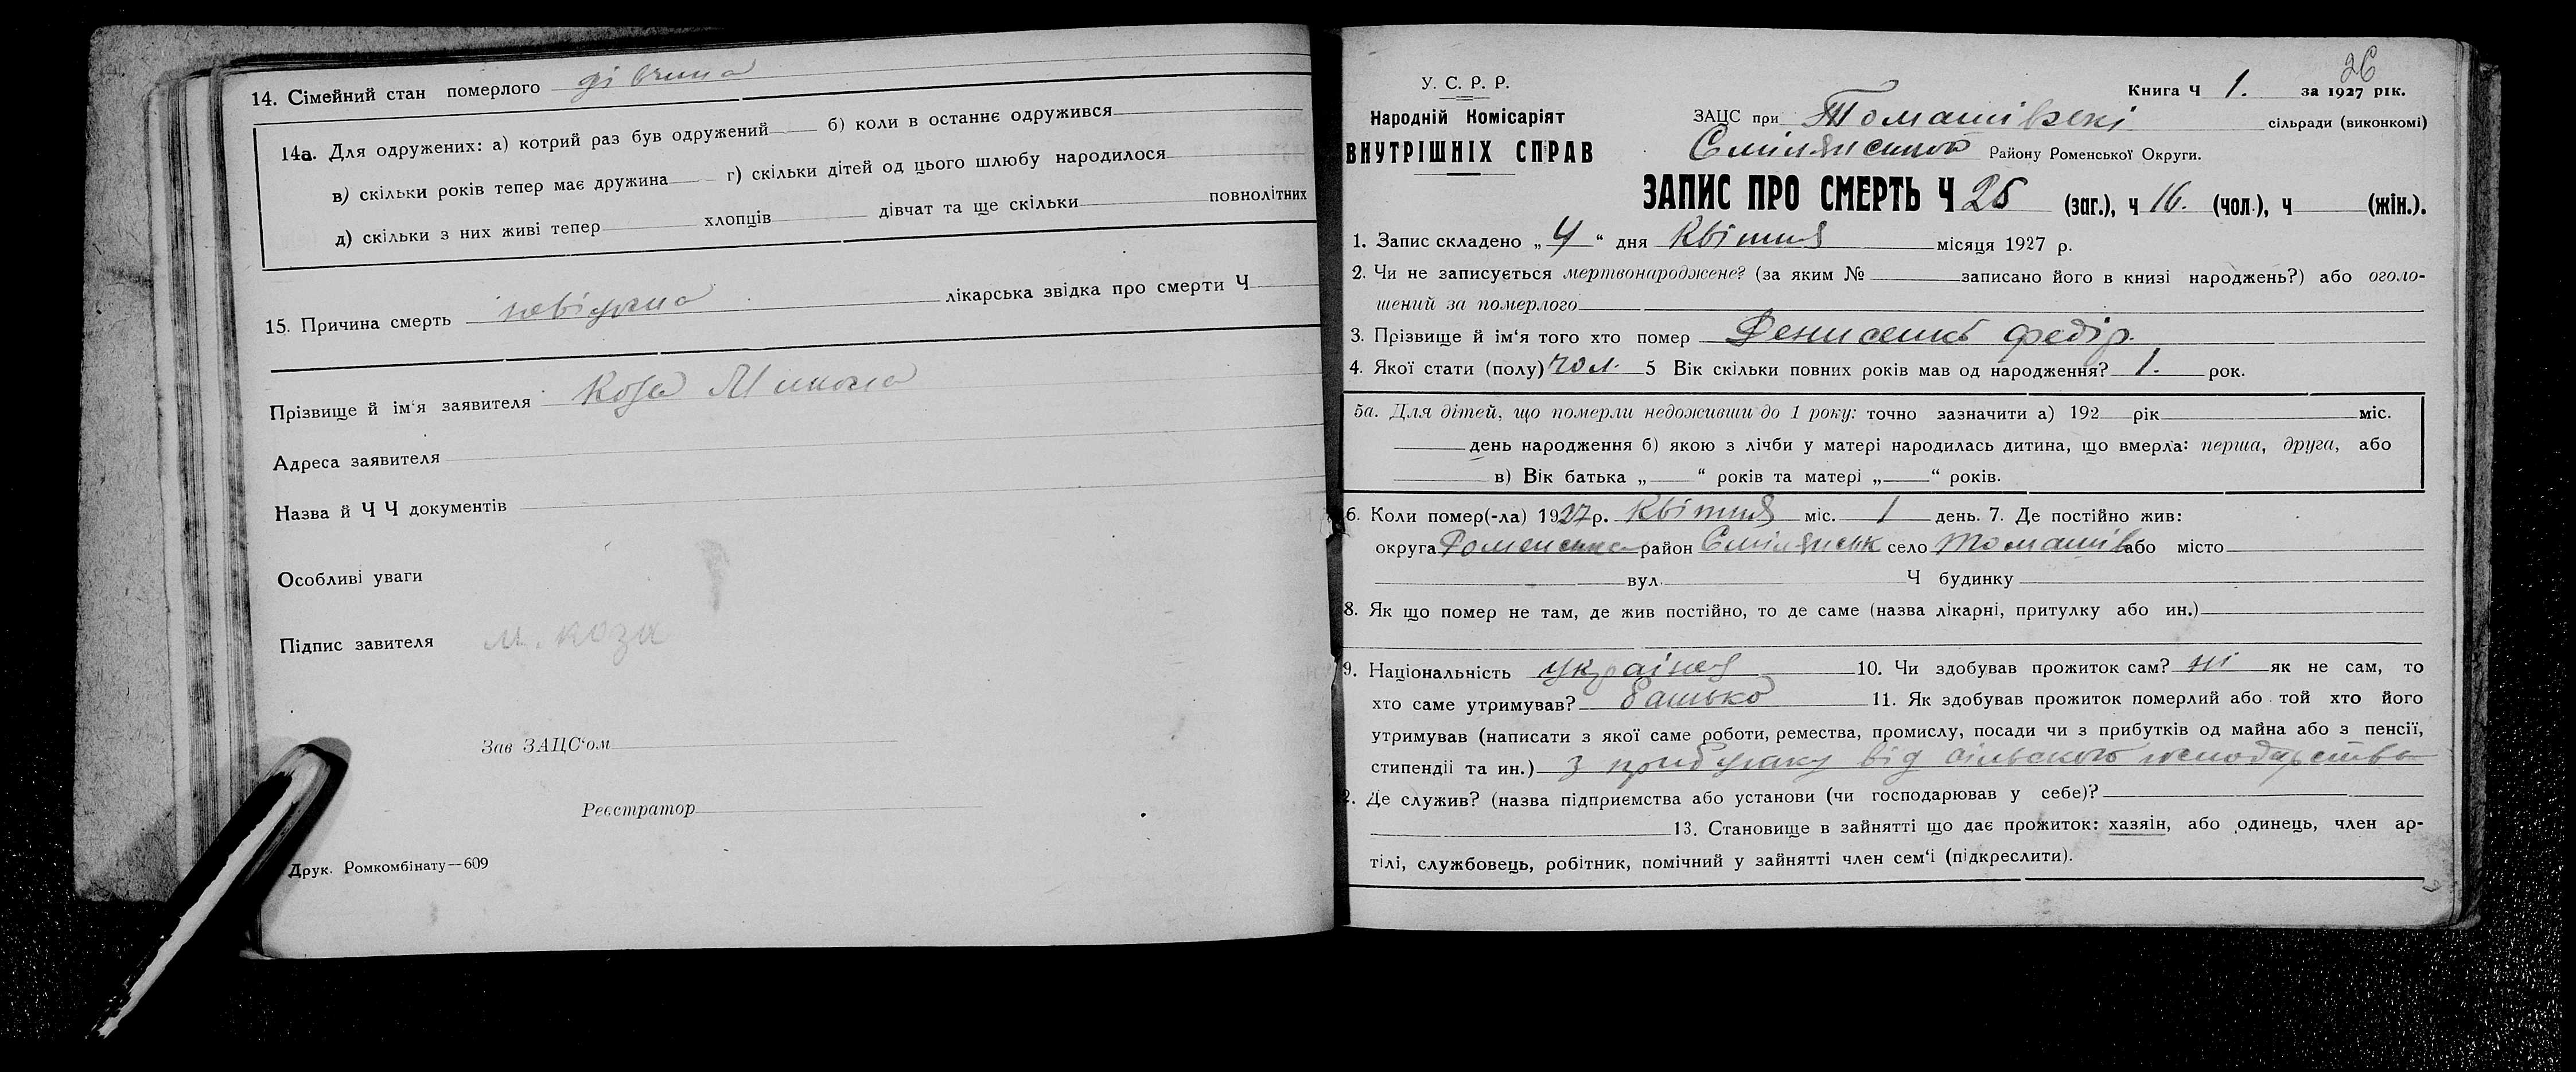 14. Сімейний стан померлого дівчина
14а. Для одружених: а) котрий раз був одружений б) коли в останнє одружився
в) скільки років тепер має дружина г) скільки дітей од цього шлюбу народилося
д) скільки з них живі тепер хлопців дівчат та ще скільки повнолітних
15. Причина смерть невідома лікарська звідка про смерти Ч
Прізвище й ім'я заявителя Коза Микола
Адреса заявителя
Назва й Ч Ч документів
Особливі уваги
Підпис завителя м. коза
Зав ЗАЦС'ом
Реєстратор
Друк. Ромкомбінату—609
26
У. С. Р. Р.
Народній Комісаріят
ВНУТРІШНІХ СПРАВ
Книга Ч 1. за 1927 рік.
ЗАЦС при Томашівскі сільради (виконкомі)
Району Роменської Округи.
ЗАПИС ПРО СМЕРТЬ Ч 25 (заг.), ч 16. (чол.), ч (жін.).
1. Запис складено „4“ дня Квітня місяця 1927 р.
2. Чи не записується мертвонароджене? (за яким № записано його в книзі народжень?) або оголо-
шений за померлого
3. Прізвище й ім'я того хто помер Денисенко Федір.
4. Якої стати (полу) чол. 5 Вік скільки повних років мав од народження? 1. рок.
5а. Для дітей, що померли недоживши до 1 року: точно зазначити а) 192 рік міс.
день народження б) якою з лічби у матері народилась дитина, що вмерла: перша, друга, або
в) Вік батька „ “ років та матері „ “ років.
6. Коли помер(-ла) 1927 р. Квітня міс. 1 день. 7. Де постійно жив:
округа Роменська район Смілянськ село Томашів або місто
вул. Ч будинку
8. Як що помер не там, де жив постійно, то де саме (назва лікарні, притулку або ин.)
9. Національність 10. Чи здобував прожиток сам? ні як не сам, то
хто саме утримував? батько 11. Як здобував прожиток померлий або той хто його
утримував (написати з якої саме роботи, ремества, промислу, посади чи з прибутків од майна або з пенсії,
стипендії та ин.) з прибутку від сільского господарства
2. Де служив? (назва підприємства або установи (чи господарював у себе)?
13. Становище в зайнятті що дає прожиток: хазяін, або одинець, член ар-
тілі, службовець, робітник, помічний у зайнятті член сем'і (підкреслити).